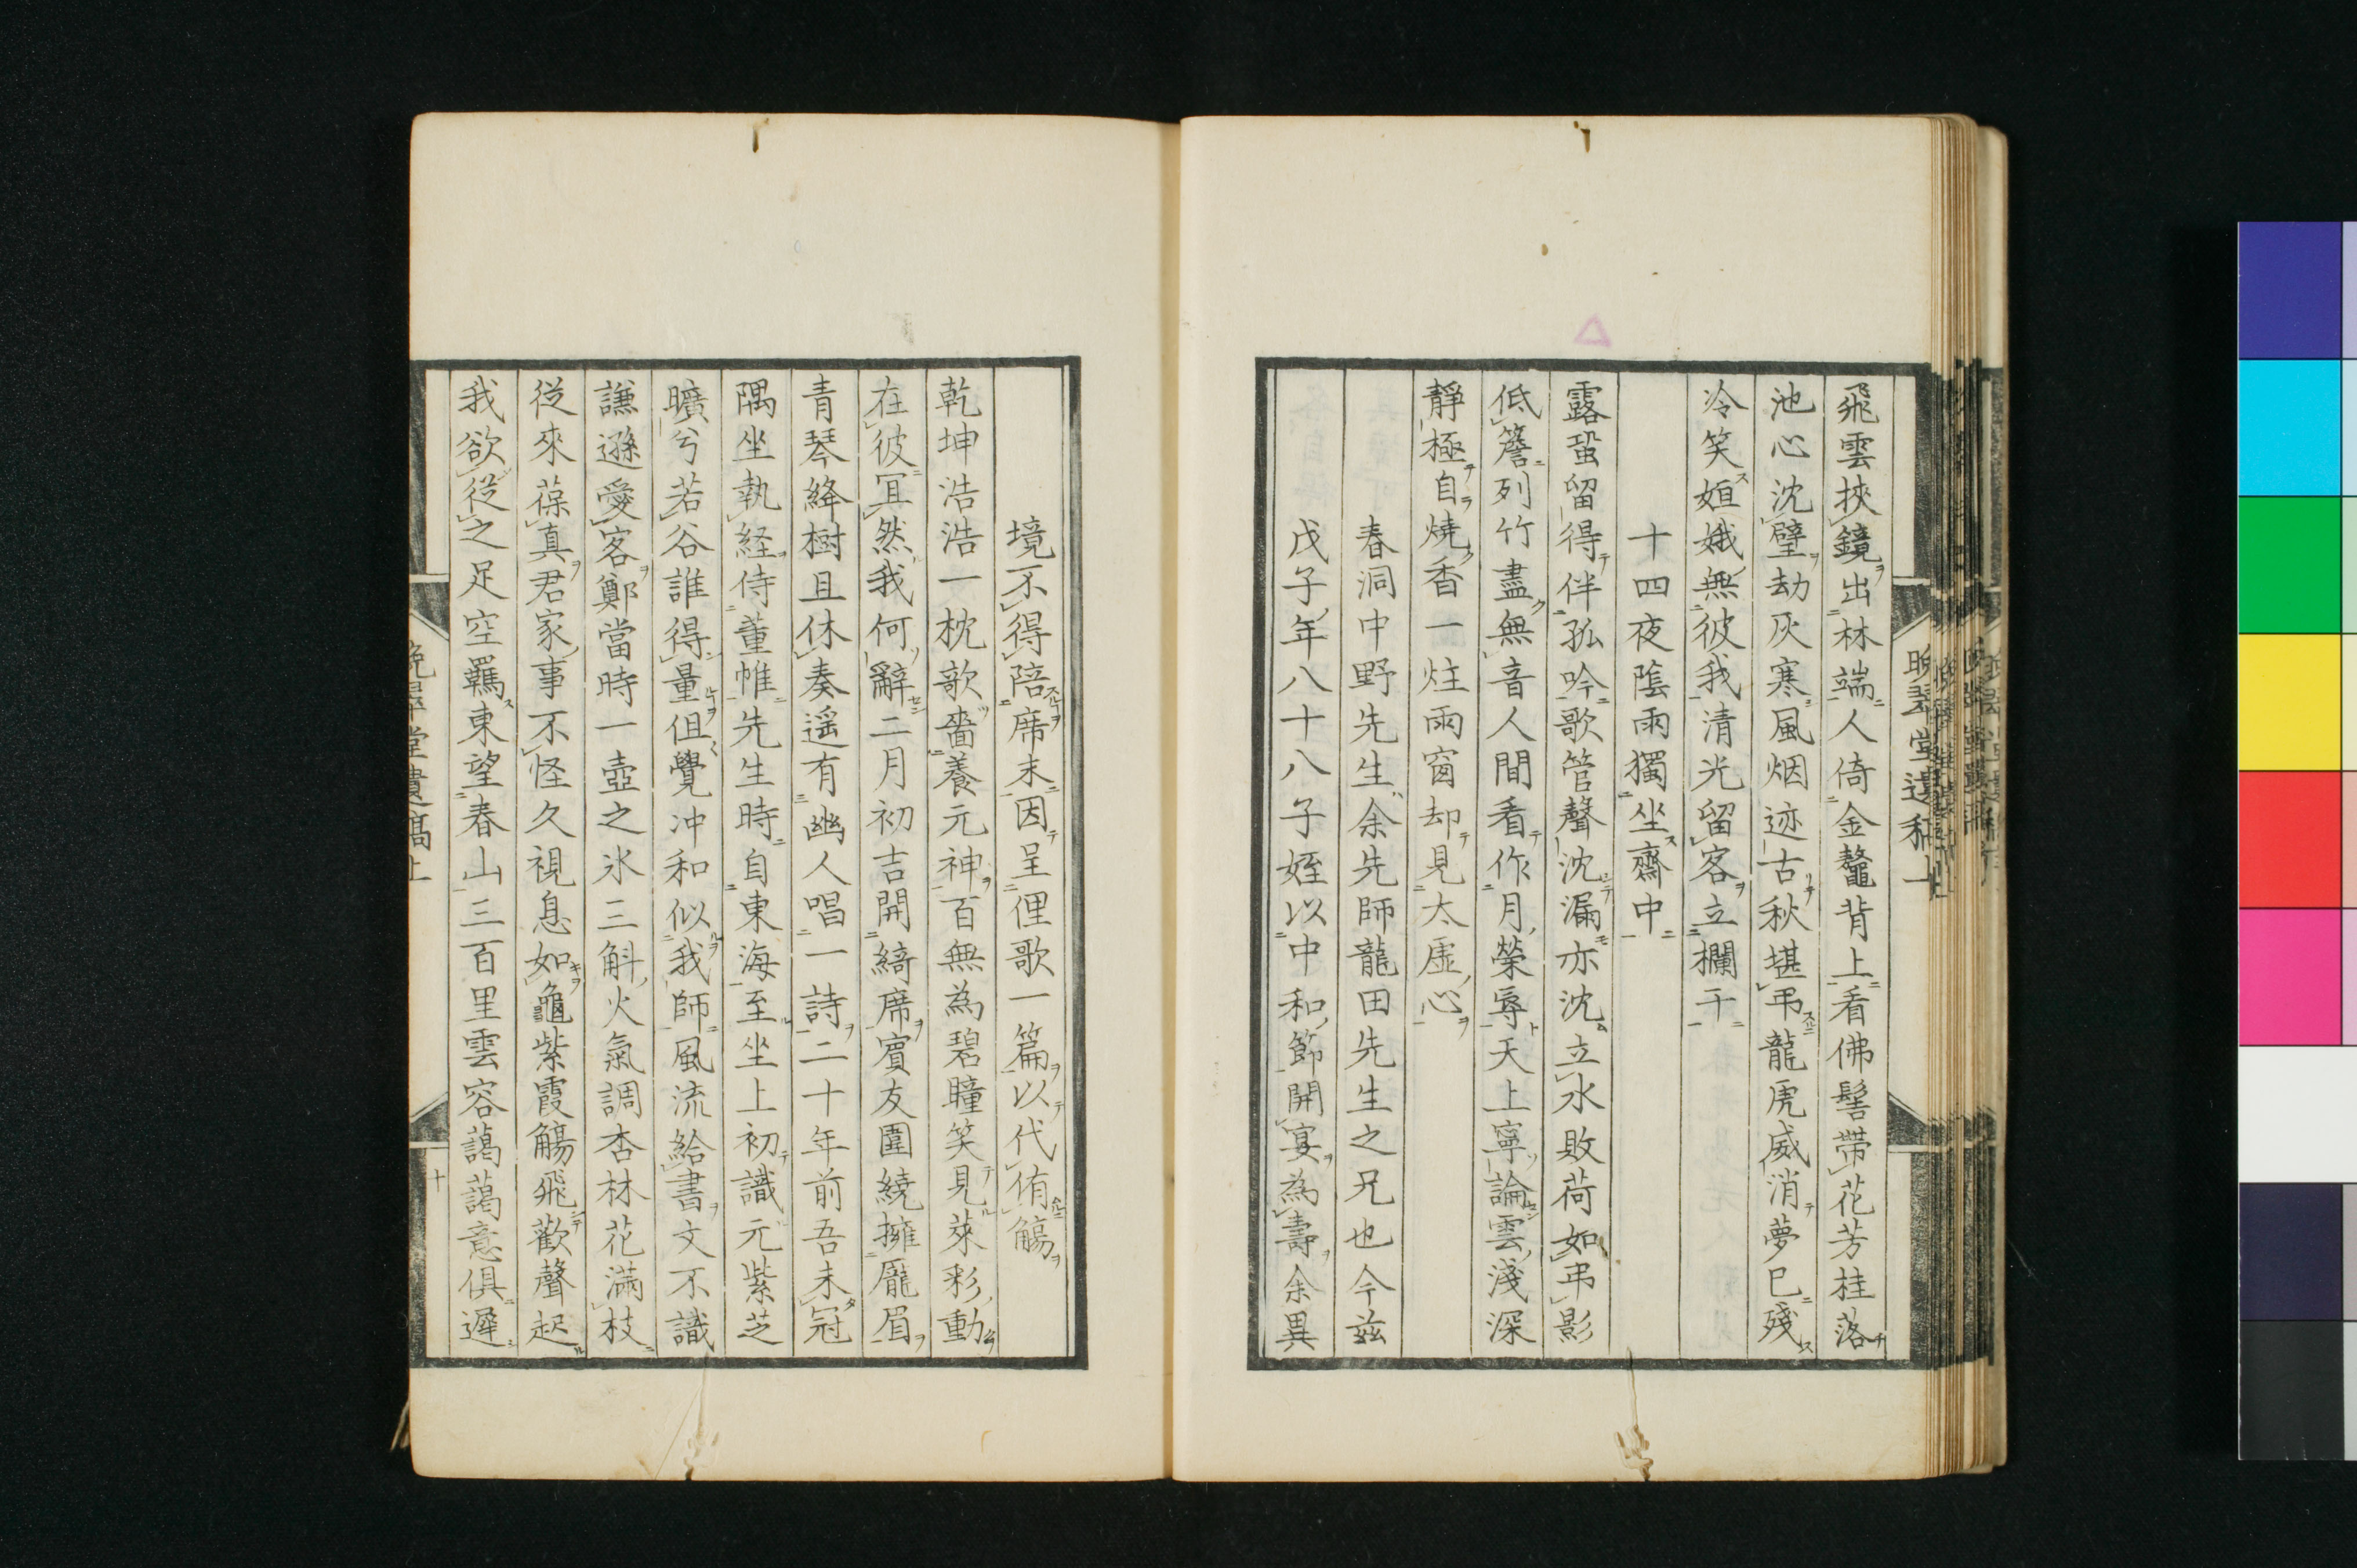 飛雲挾鏡出林端人倚金鼇背上看佛髻帶花芳桂落
池心沈璧劫灰寒風烟迹古秋堪弔龍虎威消夢已殘
冷笑姮娥無彼我清光留客立欄干
十四夜陰雨獨坐齋中
露蛩留得伴孤吟歌管聲沈漏亦沈立水敗荷如弔影
低簷列竹盡無音人間看作月榮辱天上寧論雲淺深
靜極自燒香一炷雨窗却見太虛心
春洞中野先生余先師龍田先生之兄也今茲
戊子年八十八子姪以中和節開宴為壽余異
境不得陪席末因呈俚歌一篇以代侑觴
乾坤浩浩一枕歌嗇養元神百無為碧瞳笑見萊彩動
在彼冝然我何辭二月初吉開綺席賓友圍繞擁厖眉
青琴絳樹且休奏遥有幽人唱一詩二十年前吾未冠
隅坐執経侍董帷先生時自東海至坐上初識元紫芝
曠兮若谷誰得量但覺冲和似我師風流給書文不識
謙遜愛客鄭當時一壺之氷三斛火氣調杏林花滿枝
従來葆真君家事不怪久視息如龜紫霞觴飛歡聲起
我欲従之足空羈東望春山三百里雲容藹藹意俱遲
晩翠堂遺髙上
十